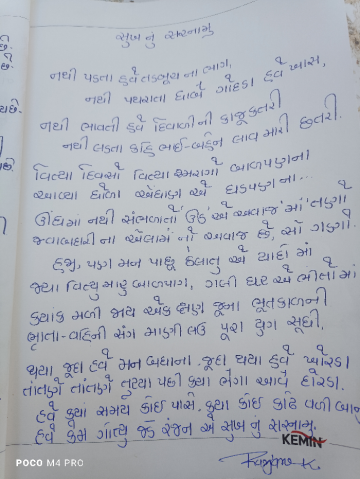 સુખ નું સરનામું
નથી પડતા હવે તડબૂચ ના ભાગ,
નથી પથરાતા ધાબે ગોદડા હવે ખાસ,
નથી ભાવતી હવે દિવાળી ની કાજુકતરી
નથી લડતા કહિ ભાઈ-બહેન લાવ મારી છતરી.
વિત્યા દિવસો વિત્યા સ્મરણો બાળપણના
આવ્યા ધોળા એંધાણ એ ઘડપણ ના...
ઊંઘમાં નથી સંભળાતો ઉઠ એ અવાજ માં
જવાબદારી ના એલાર્મ નો અવાજ છે, સો ગણો.
હજુ, પણ મન પાછુ ઠેલાતુ એ યાદો માં
જ્યા વિત્યુ મારુ બાળપણ, ગલી ઘર એ ભીંતો માં
ક્યાક મળી જાય એક ક્ષણ જૂના ભૂતકાળની
ભ્રાતા-બહિની સંગ માણી લઉ પૂરા યુગ સુધી.
થયા જૂદા હવે મન બધાના. જૂદા થયા હવે ઓરડા
તાંતણે તાંતણે તુટ્યા પછી ક્યા ભેગા આવે દોરડા.
હવે ક્યા સમય કોઈ પાસે. ક્યા કોઈ કાઢે વળી
હવે કેમ ગોત્યુ જડે રંજન એ સુખ નું સરનામુ.
KEMIN
Ranjan K.
POCO M4 PRO